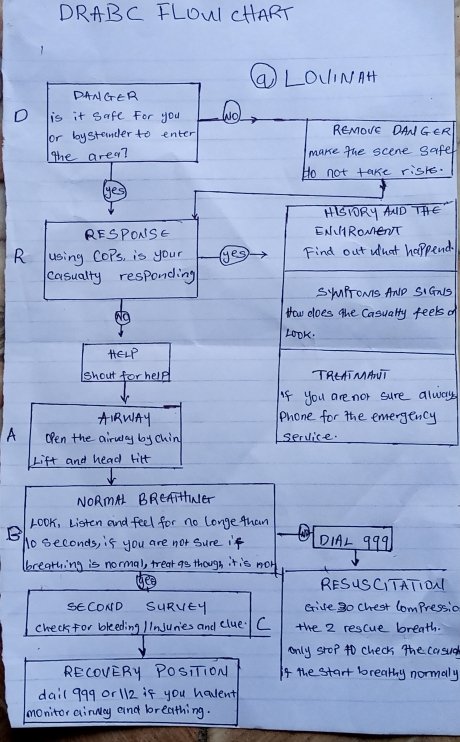 DRABC FLOW CHART
@ LOVINAH
D
DANGER
is it safe for you
or bystander to enter
the area?
NO
REMOVE DANGER
make the scene safe
do not take risk.
yes
R
RESPONSE
using COPS is your
casualty responding
yes
HISTORY AND THE
ENVIROMENT
Find out what happend
SYMPTOMS AND SIGNS
How does the casualty feels o
LOOK.
TREATMANT
if you are not sure always
Phone for the emergency
service.
NO
HELP
Shout for help
A
AIRWAY
Open the airway by chin
Lift and head tilt
B
NORMAL BREATHING
LOOK, Listen and feel for no longe than
10 seconds, if you are not sure if
breathing is normal, treat as though it is not
NO
DIAL 999
RESUSCITATION
Give 30 chest compressio
the 2 rescue breath.
only stop to check the casual
if the start breathy normaly
yes
SECOND SURVEY
check for bleeding / Injuries and clue. C
RECOVERY POSITION
dail 999 or 112 if you havent
monitor airway and breathing.